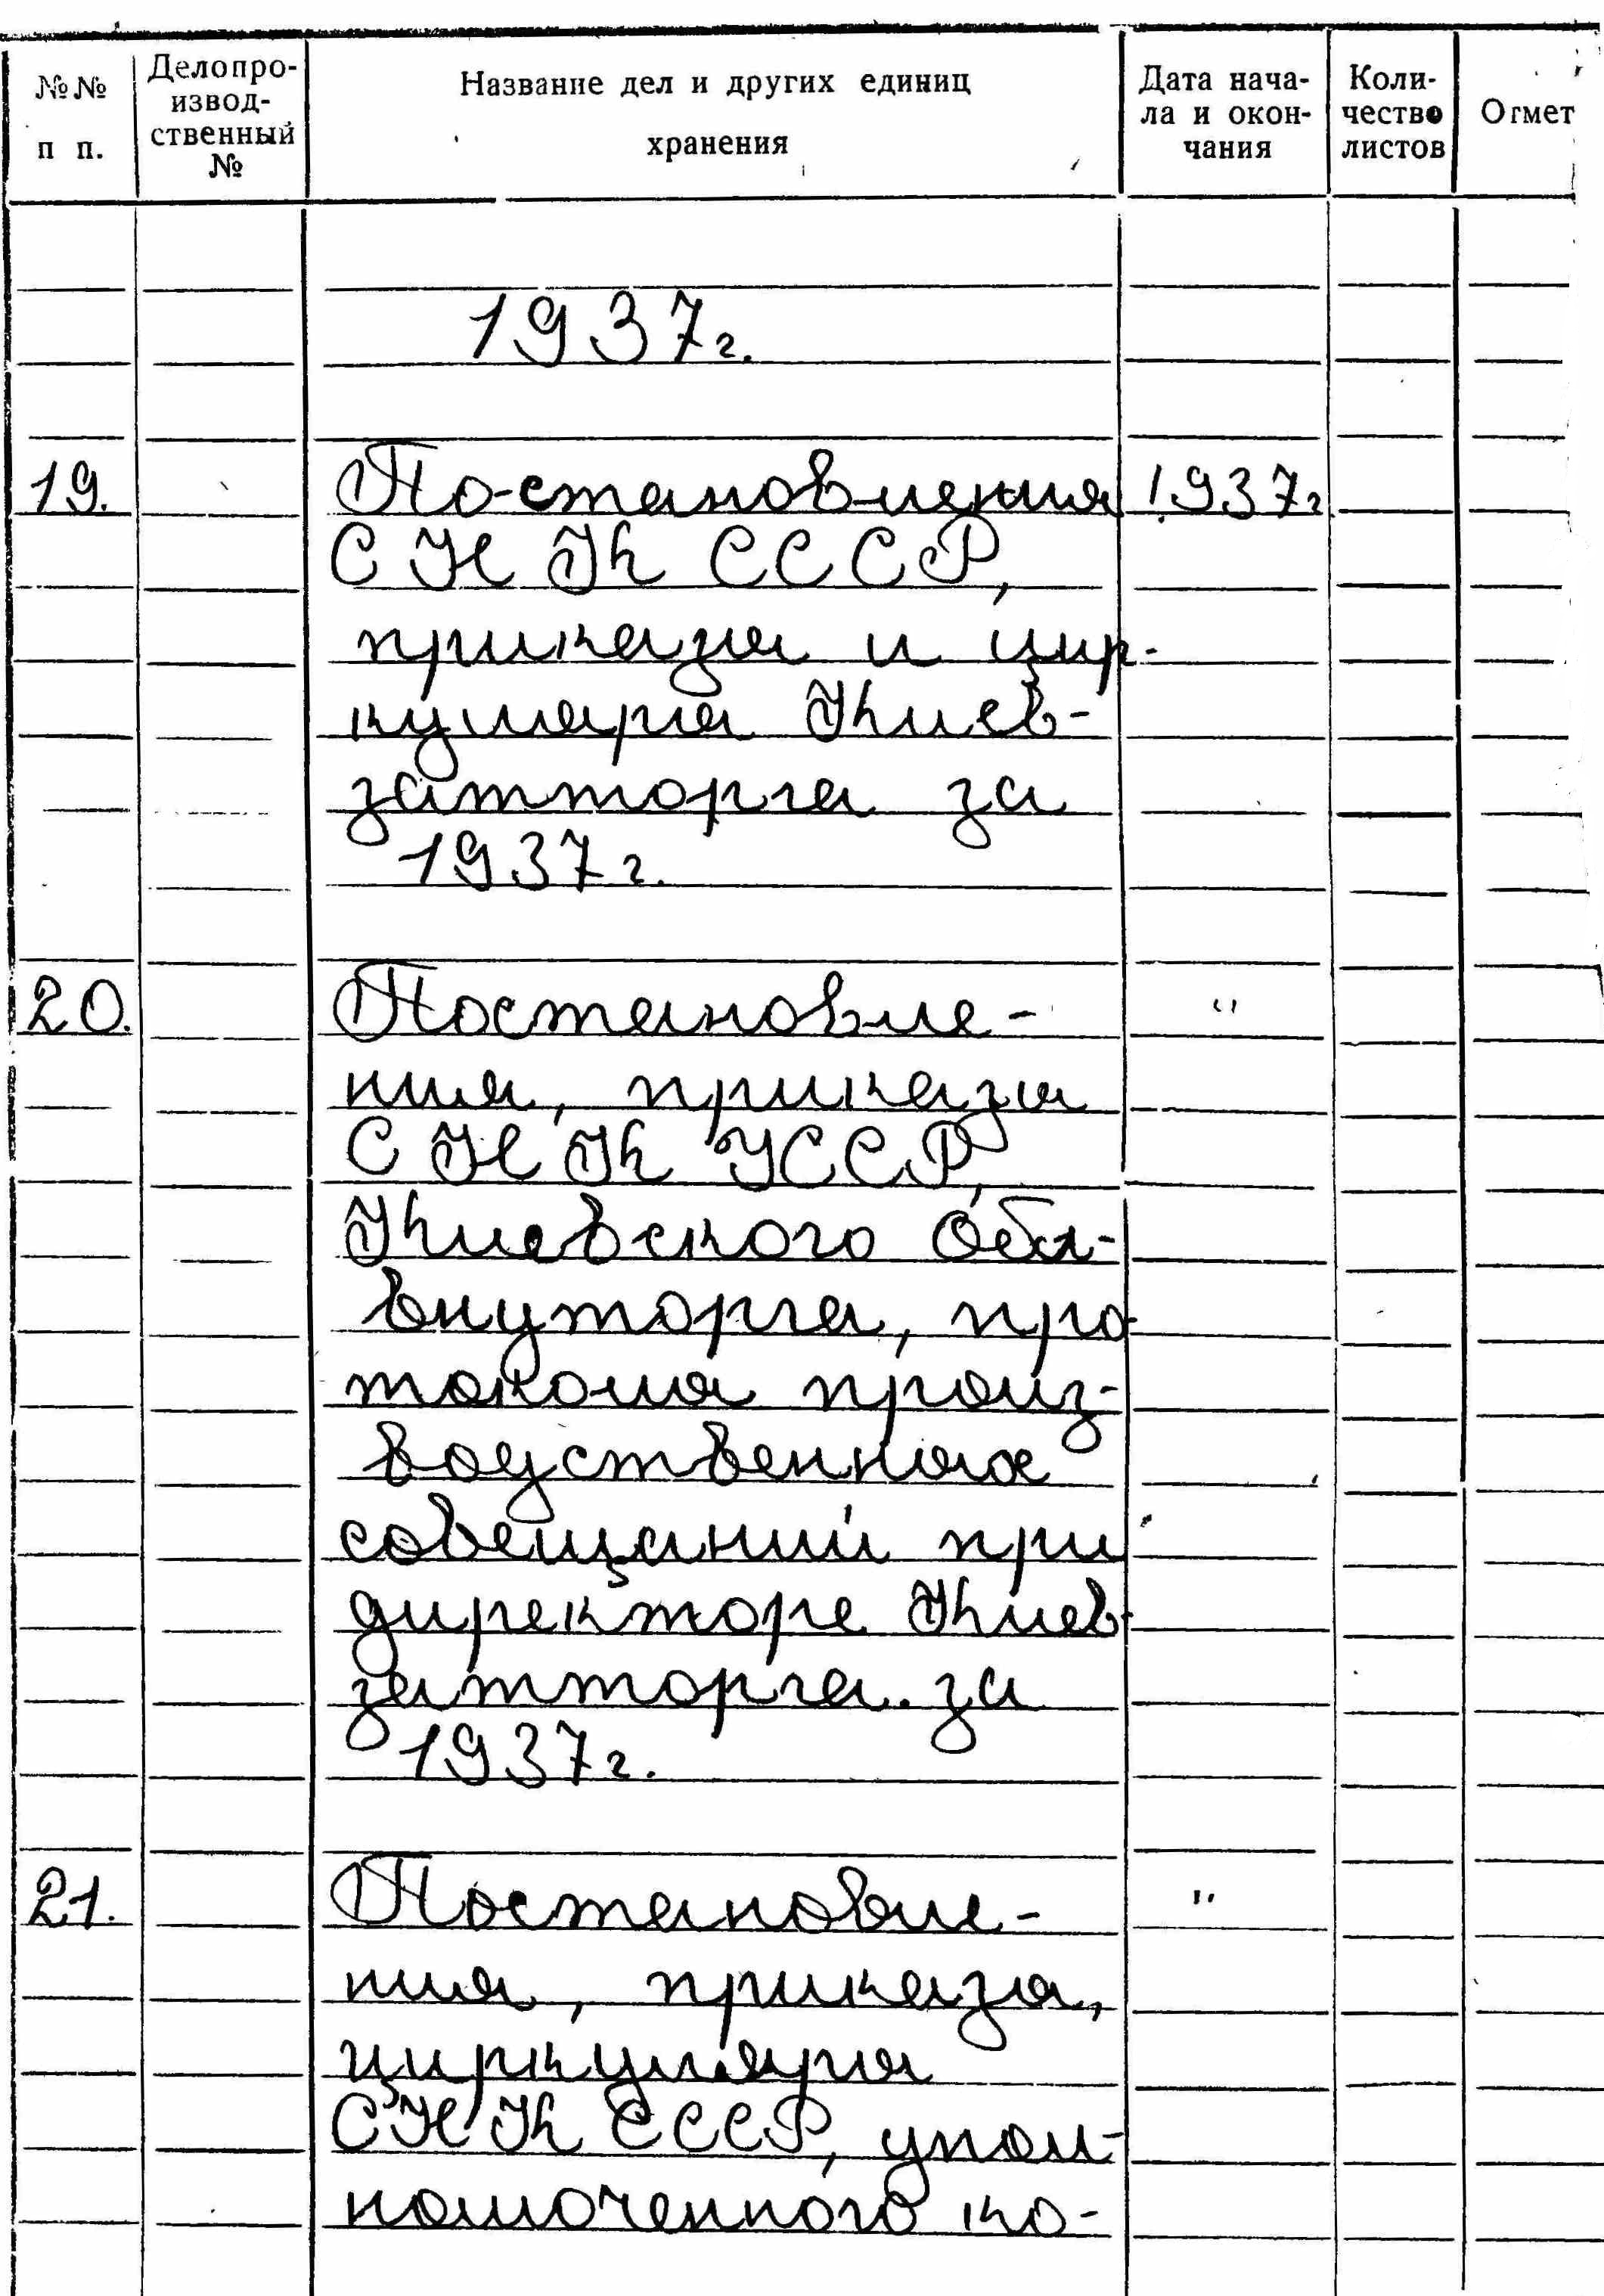 №№ п п.
Делопро-
извод-
ственный
№
Название дел и других единиц
хранения
Дата нача-
ла и окон-
чания
Коли-
чество
листов
Отмет
1937г.
19. Постановления 1937г
СНК СССР,
приказы и цир-
куляры Киев-
затторга за
1937г.
20. Постановле- "
ния, приказы
СНК УССР,
Киевского Обл-
внуторга, про-
токолы произ-
водственных
совещаний при
директоре Киев-
затторга за
1937г.
21. Постановле- "
ния, приказы,
циркуляры
СНК СССР, упол-
номоченного ко-